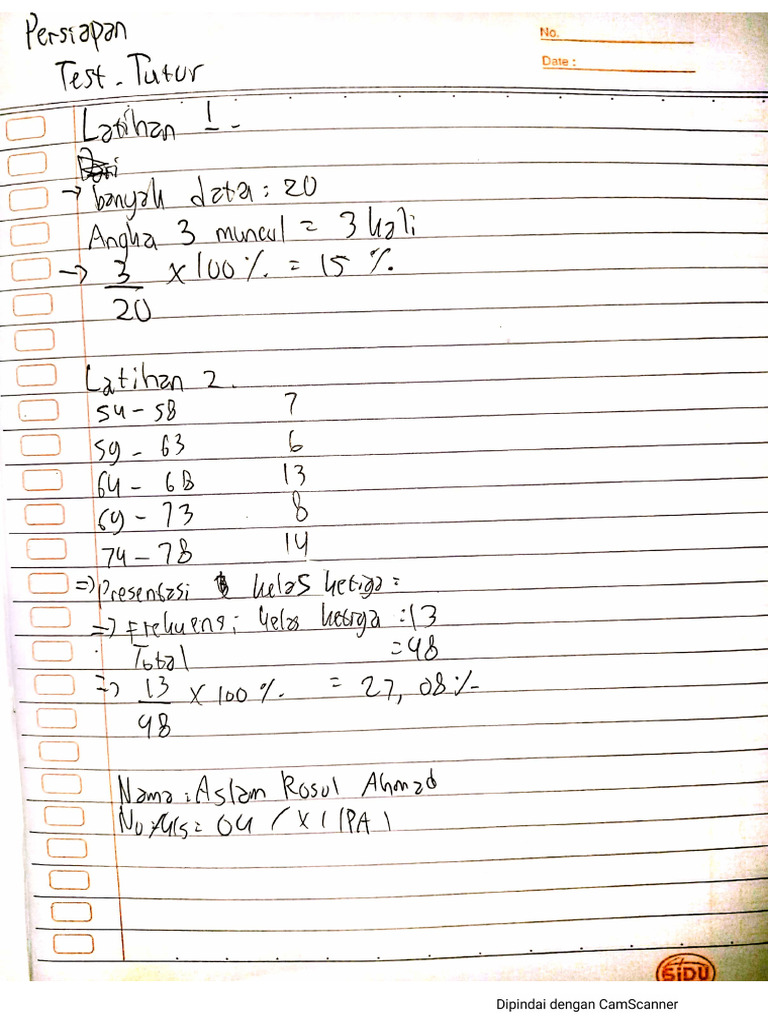 Persiapan
Test - Tutur
No.
Date :
Latihan 1.
→ banyak data : 20
Angka 3 muncul = 3 kali
→ 3/20 x 100 % = 15 %
Latihan 2.
54 - 58 7
59 - 63 6
64 - 68 13
69 - 73 8
74 - 78 14
⇒ Presentasi kelas ketiga =
⇒ Frekuensi kelas ketiga : 13
Total = 48
⇒ 13/48 x 100 % = 27,08 %
Nama : Aslam Rosul Ahmad
No = 04 / XI IPA 1
SiDU
Dipindai dengan CamScanner